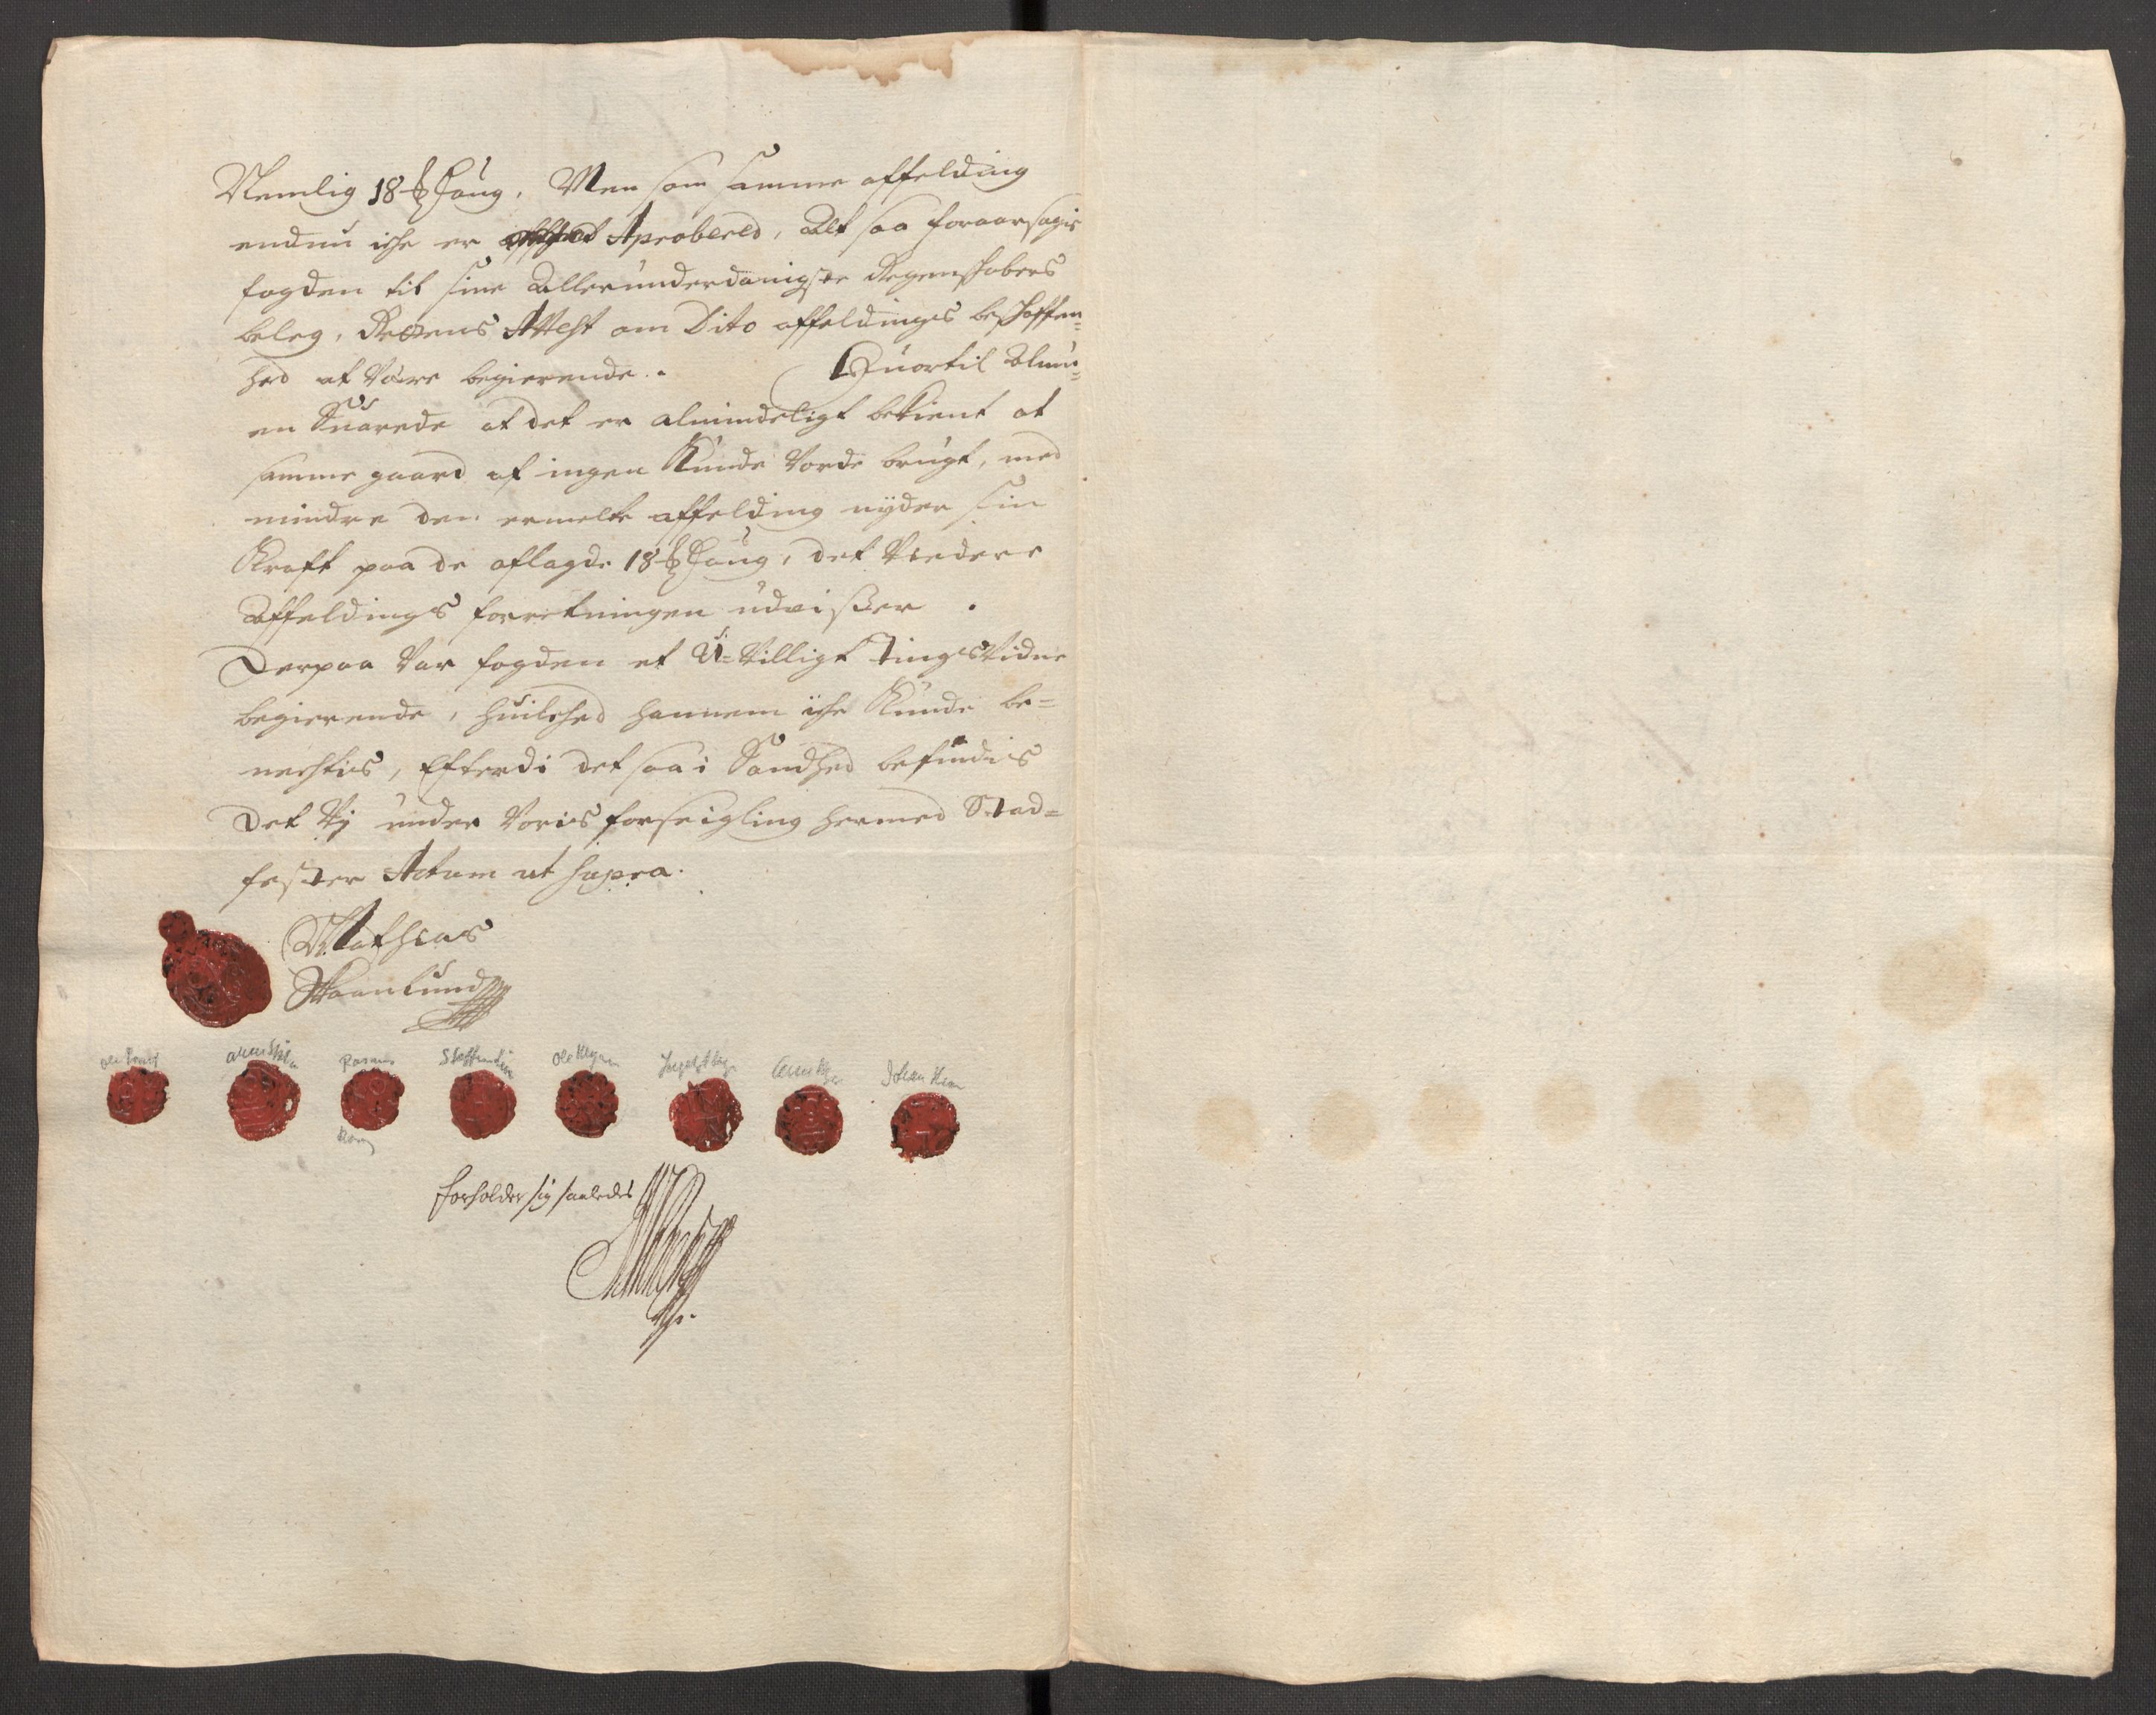 Nemlig 18 ₶ Laug. Men som samme affelding
endnu iche er Aprobered, Alt saa foraarsagis
fogden til sine Allerunderdanigste Regenschabers
beleg, Rettens Attest om Dito affeldings beschaffen=
hed at være begierende. Huortil Almu=
en Suarede at det er almindeligt bekient at
samme gaard af ingen Kunde vorde brugt, med
mindre den ermelte affelding nyder sin
Kraft paa de aflagde 18 ₶ Laug, det viedere
Affeldings forretningen udvisser.
Derpaa var fogden et U-villigt Tingsvidne
begierende, huilched hannem iche Kunde be=
nechtis, Efterdi det saa i Sandhed befindis
Det Vj under voris forseigling hermed Stad=
fester Actum ut supra.
Mathias
Skaanlund
Rasmus
Steffen
Ole
Johan
forholder sig saaledes